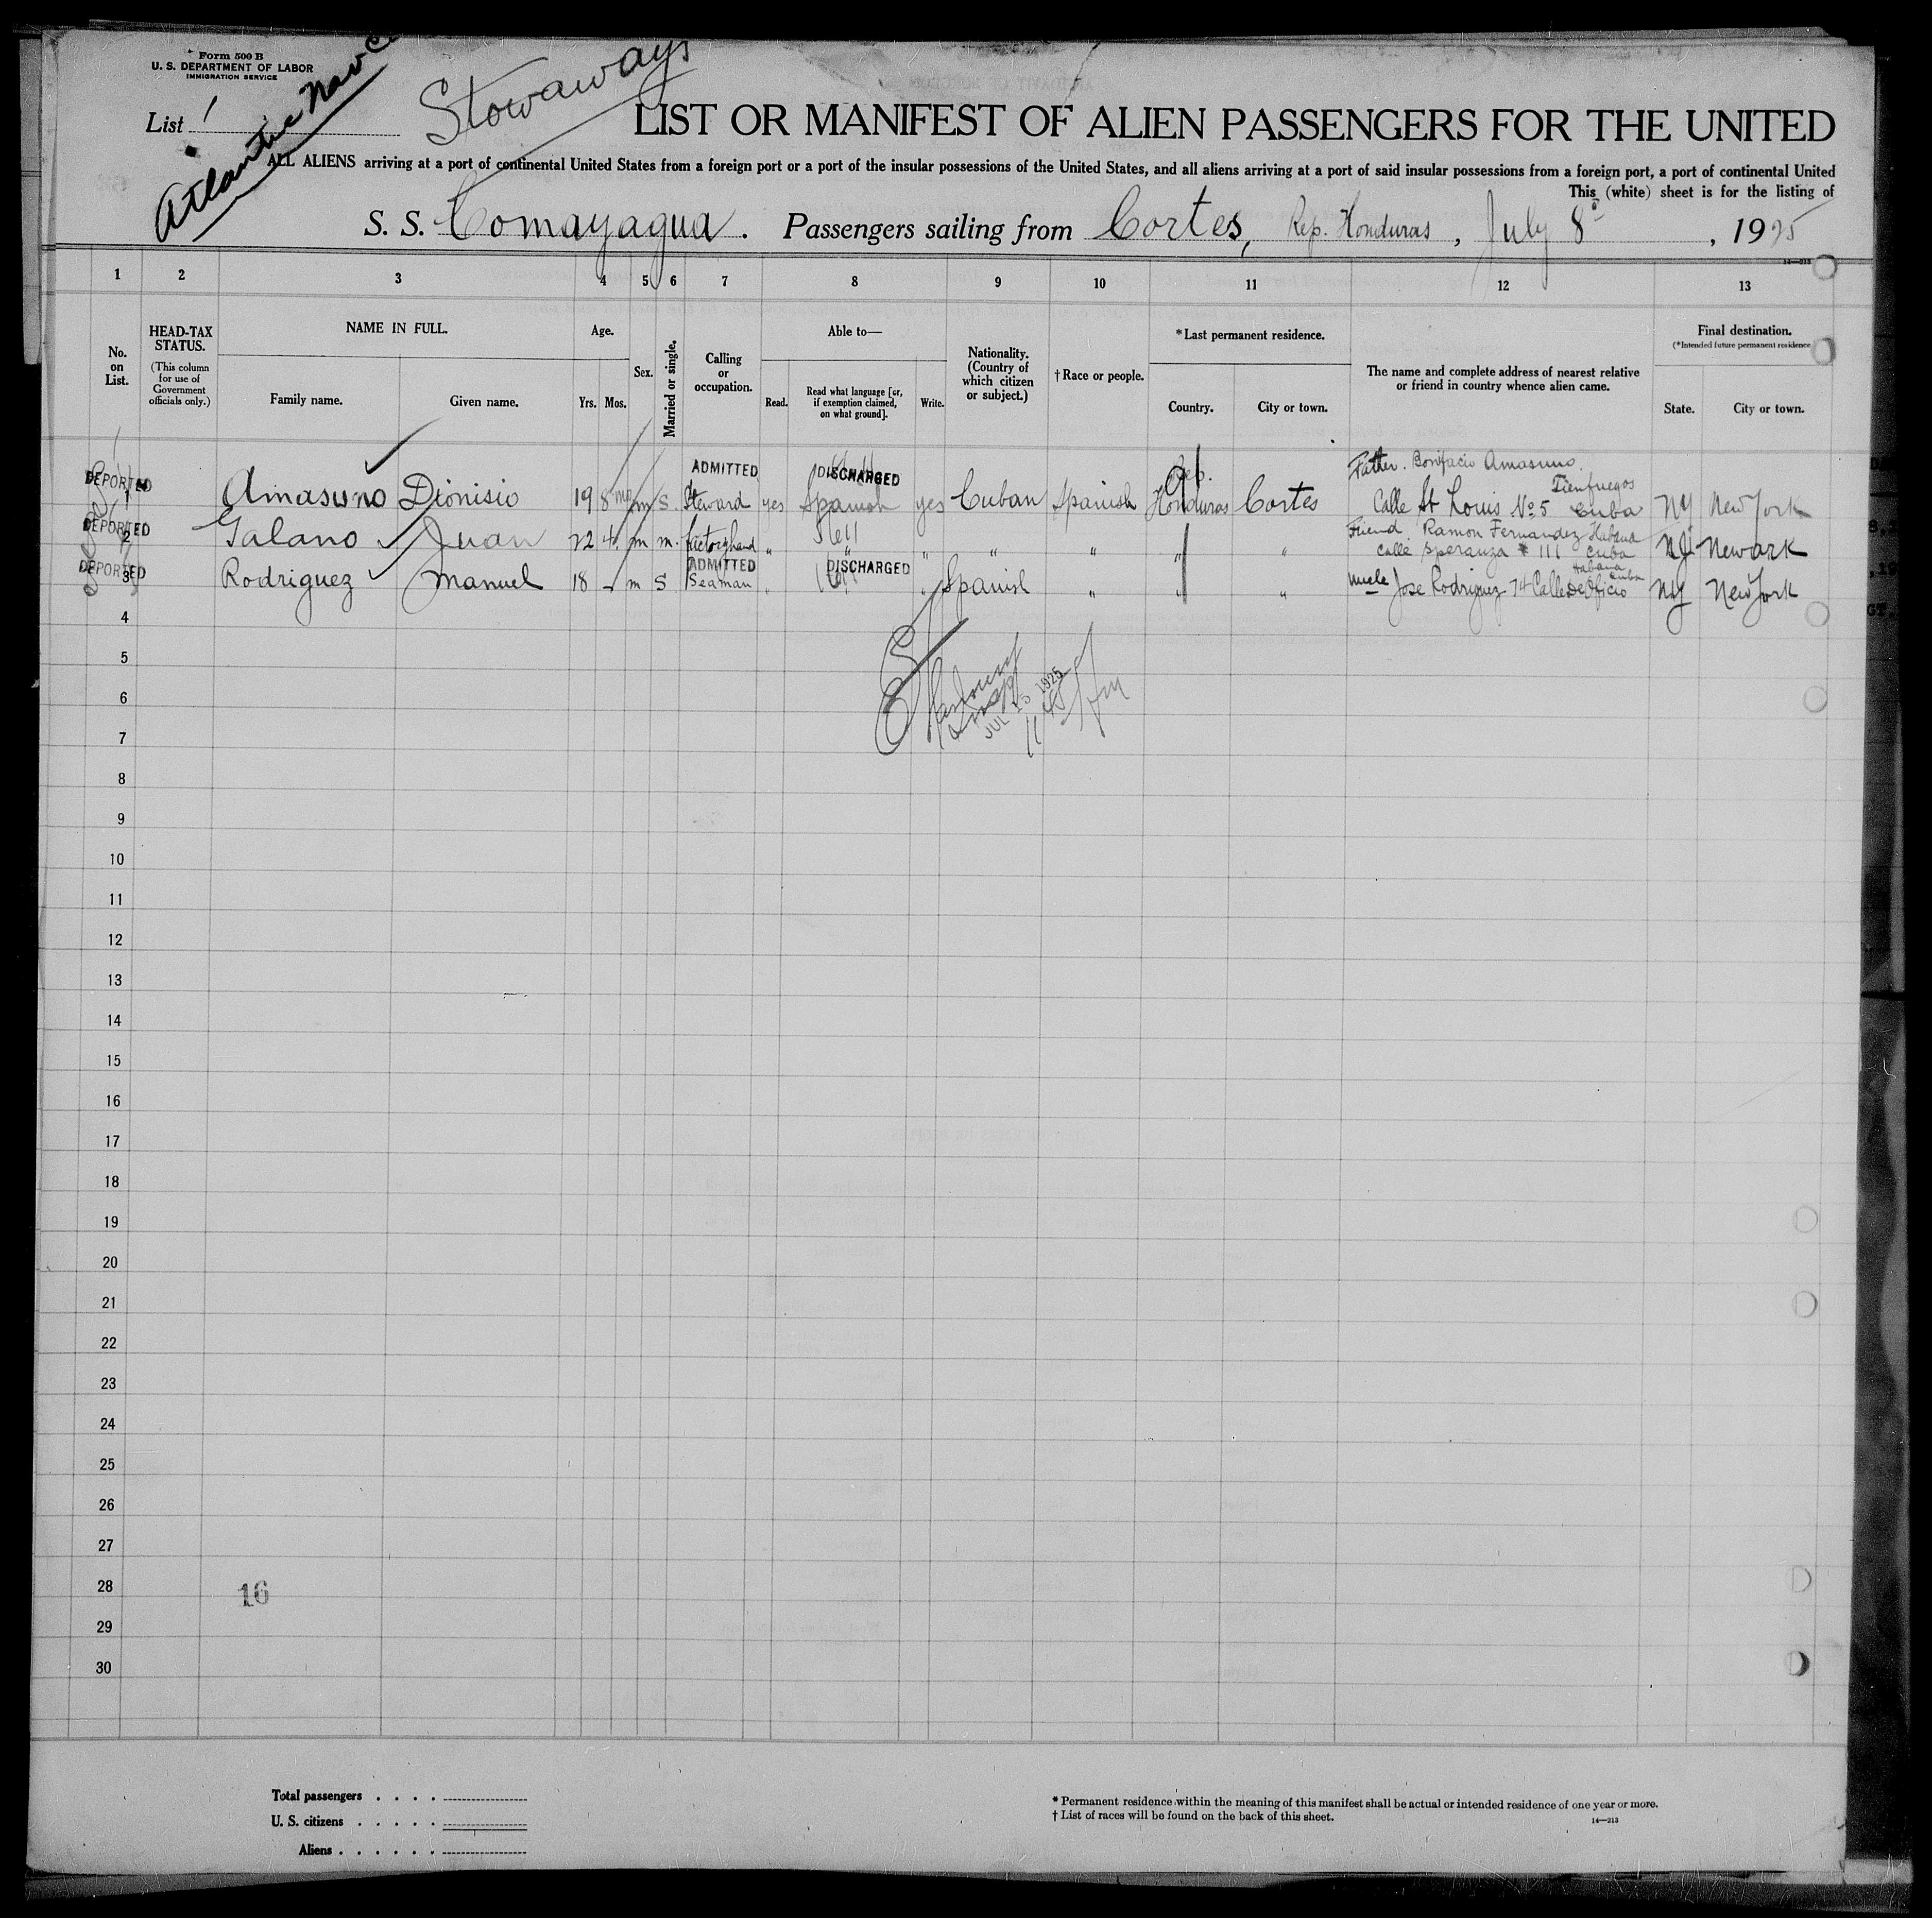 Form 500 B
U. S. DEPARTMENT OF LABOR
IMMIGRATION SERVICE
List 1
Atlantic Nav Co
Stowaways
LIST OR MANIFEST OF ALIEN PASSENGERS FOR THE UNITED
ALL ALIENS arriving at a port of continental United States from a foreign port or a port of the insular possessions of the United States, and all aliens arriving at a port of said insular possessions from a foreign port, a port of continental United
This (white) sheet is for the listing of
S. S. Comayagua. Passengers sailing from Cortes, Rep. Honduras, July 8, 1925
14—213
1 2 3 4 5 6 7 8 9 10 11 12 13
No. on List.
HEAD-TAX STATUS.
(This column for use of Government officials only.)
NAME IN FULL.
Family name. Given name.
Age.
Yrs. Mos.
Sex.
Married or single.
Calling or occupation.
Able to—
Read. Read what language [or, if exemption claimed, on what ground]. Write.
Nationality. (Country of which citizen or subject.)
†Race or people.
*Last permanent residence.
Country. City or town.
The name and complete address of nearest relative or friend in country whence alien came.
Final destination.
(*Intended future permanent residence
State. City or town.
DEPORTED ADMITTED DISCHARGED Rep. Father. Bonifacio Amasuno.
1 Amasuno Dionisio 19 8 m s Steward yes Spanish yes Cuban Spanish Honduras Cortes Calle St Louis No 5 Cienfuegos Cuba NY New York
DEPORTED Friend. Ramon Fernandez Habana
2 Galano Juan 22 4 m m. factoryhand " " " " " " " Calle Speranza # 111 Cuba NJ Newark
DEPORTED ADMITTED DISCHARGED Habana Cuba
3 Rodriguez Manuel 18 - m s Seaman " " Spanish " " " Uncle Jose Rodriguez 74 Calle De Oficio NY New York
4
5
6
JUL 15 1925
7
8
9
10
11
12
13
14
15
16
17
18
19
20
21
22
23
24
25
26
27
28
16
29
30
Total passengers . . . .
U. S. citizens . . . . .
Aliens . . . . . .
* Permanent residence within the meaning of this manifest shall be actual or intended residence of one year or more.
† List of races will be found on the back of this sheet.
14—213